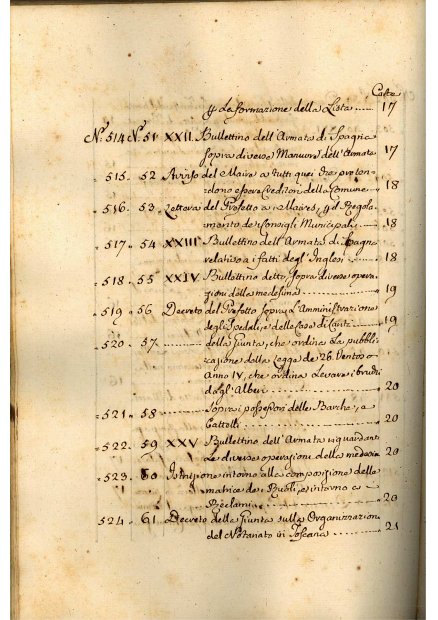 Carte
p La formazione della Lista ...... 17
N.º 514 N. 51 XXII. Bullettino dell'Armata di Spagna
sopra diverse Manuvre dell'Armata 17
" 515. 52 Avviso del Maire a tutti quei che preten-
dono essere Creditori della Comune 18
" 516. 53. Lettera del Prefetto a' Maires, p il Regola-
mento de' Consigli Municipali 18
" 517 " 54 XXIII Bullettino dell'Armata di Spagna
relativo a i fatti degl'Inglesi 18
" 518 " 55 XXIV Bullettino detto, sopra diverse opera-
zioni della medesima 19
" 519 " 56 Decreto del Prefetto sopra l'Amministrazione
degli Spedali, e delle Case di Carità 19
" 520. " 57. della Giunta, che ordina la pubbli-
cazione della Legge de' 26. Ventoso
Anno IV, che ordina levare i bruchi
dagl'Alberi 20
" 521 " 58 Sopra i possessori delle Barche, o
Battelli 20
" 522. " 59 XXV Bullettino dell'Armata riguardante
le diverse operazioni della medesima 20
" 523. " 60 Istruzione intorno alla composizione delle
matrice de' Ruoli, e intorno a'
Reclami 20
" 524 " 61. Decreto della Giunta sulla Organizzazione
del Notariato in Toscana 21